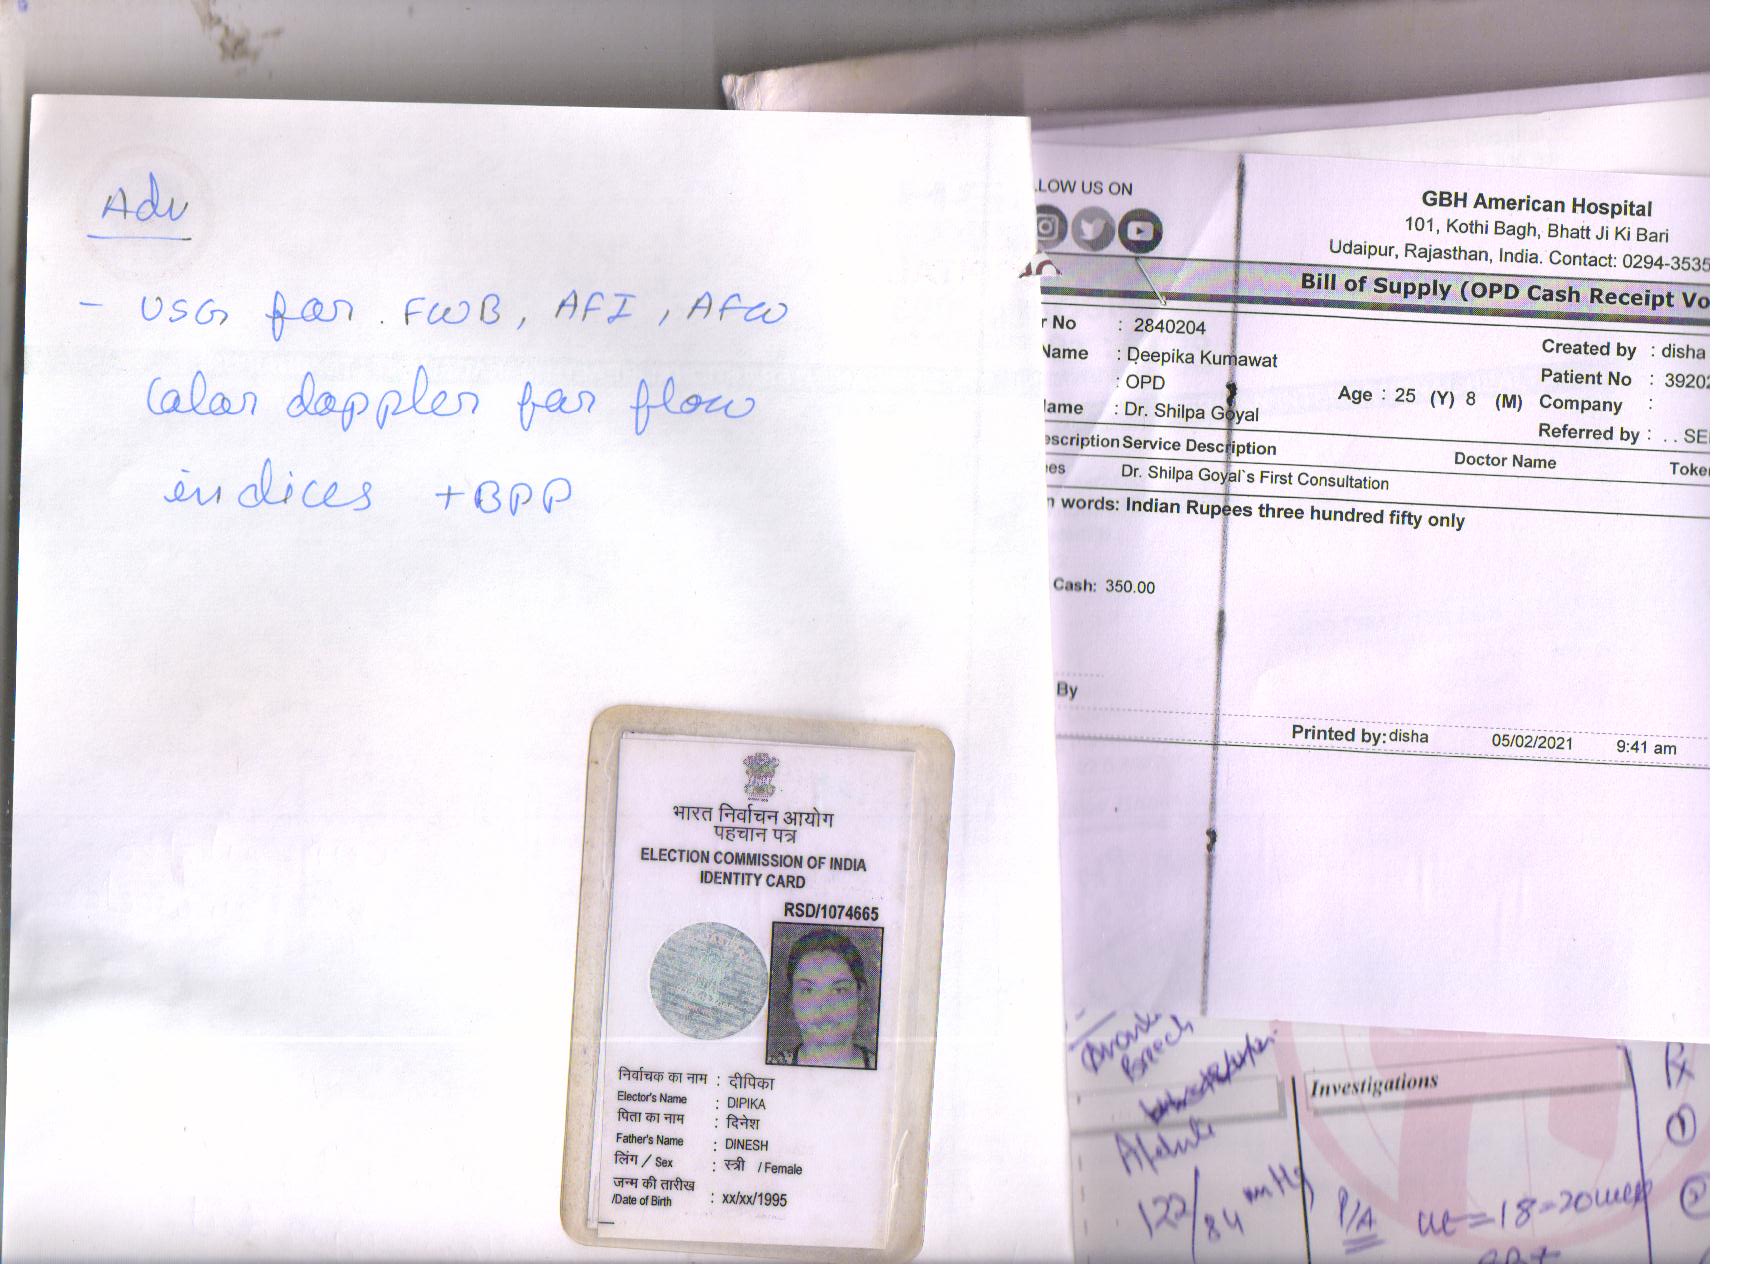 Adv
- USG for FWB, AFI, AFW
Color doppler for flow
indices +BPP
LOW US ON
GBH American Hospital
101, Kothi Bagh, Bhatt Ji Ki Bari
Udaipur, Rajasthan, India. Contact: 0294-3535
Bill of Supply (OPD Cash Receipt Vo
r No : 2840204
Created by : disha
Name : Deepika Kumawat
Patient No : 3920
: OPD
Age : 25 (Y) 8 (M) Company :
ame : Dr. Shilpa Goyal
Referred by : . . SE
escription Service Description Doctor Name Toke
es Dr. Shilpa Goyal`s First Consultation
n words: Indian Rupees three hundred fifty only
Cash: 350.00
By
Printed by: disha 05/02/2021 9:41 am
भारत निर्वाचन आयोग
पहचान पत्र
ELECTION COMMISSION OF INDIA
IDENTITY CARD
RSD/1074665
निर्वाचक का नाम : दीपिका
Elector's Name : DIPIKA
पिता का नाम : दिनेश
Father's Name : DINESH
लिंग / Sex : स्त्री / Female
जन्म की तारीख
/Date of Birth : xx/xx/1995
Breech
Investigations
Rx
①
Afebrile
122/84 mmHg
P/A ut = 18-20 week
②